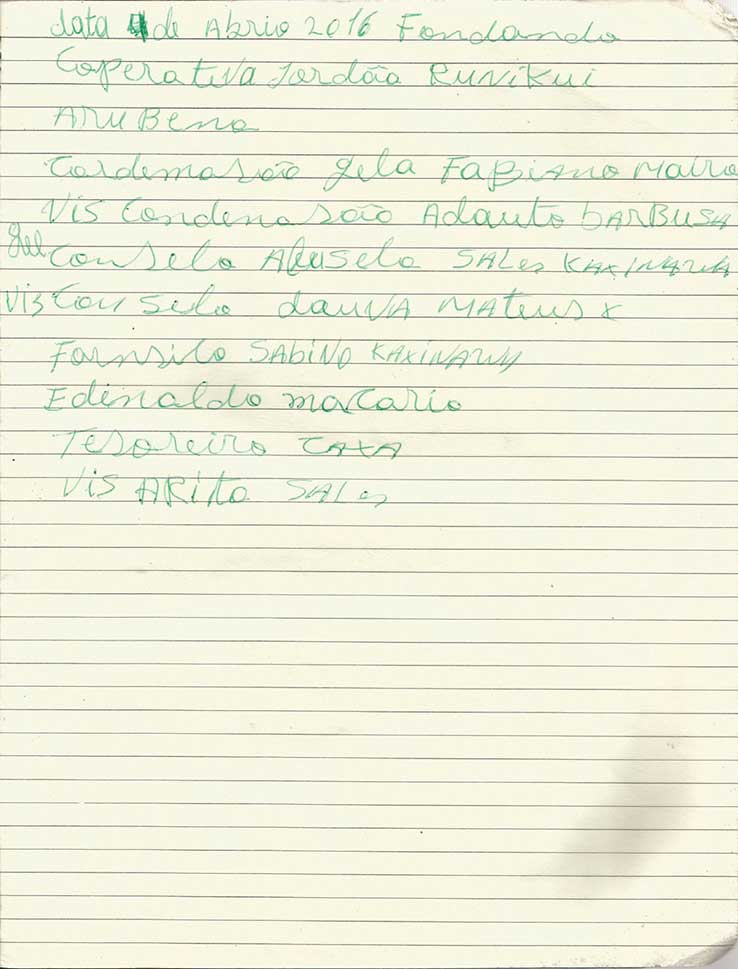 data 4 de Abrio 2016 Fondando
Coperativa Jordão RUNiKui
ARU Bena
Cordemasão gela FaBiano Mairo
Vis Condenasão Adauto bARBUSA
gel Conselo Aluselo SALes KAXINAWA
Vis Conselo dauvA MAteus x
Fornsilo SABiNO KAXINAWA
Edinaldo macario
Tesoreiro TAXA
Vis ARito SALes